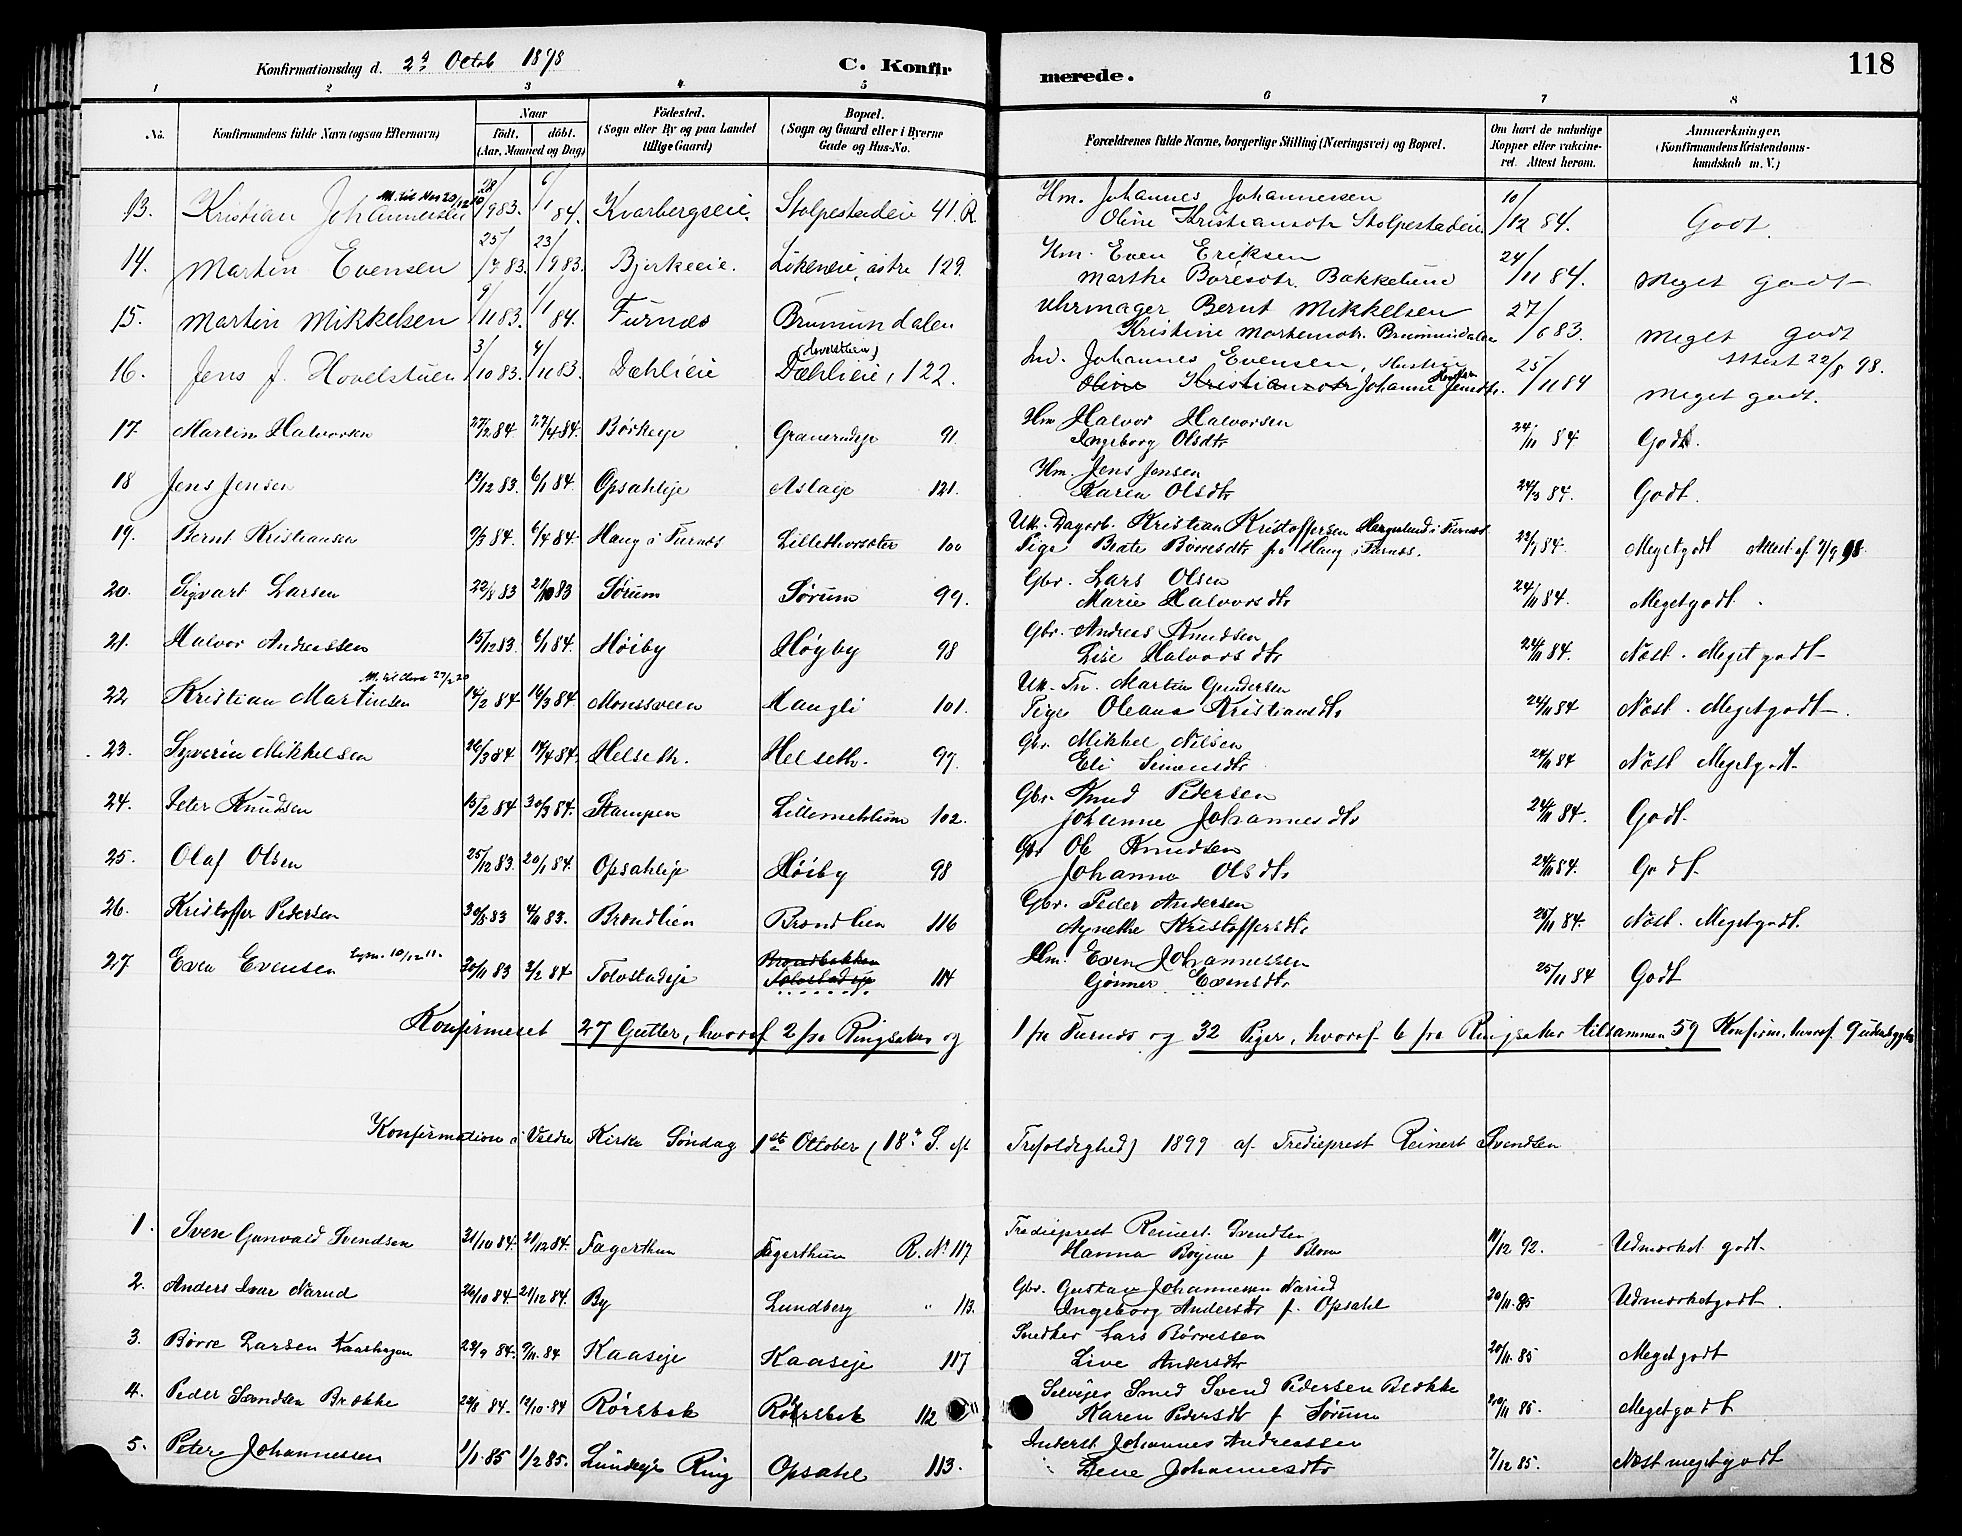 118
Konfirmationsdag d. 2d Octob 1898 C. Konfirmerede.
1 2 3 4 5 6 7 8
No. Konfirmandens fulde Navn (ogsaa Efternavn) Naar født. døbt. (Aar, Maaned og Dag) Fødested. (Sogn eller By og paa Landet tillige Gaard) Bopæl. (Sogn og Gaard eller i Byerne Gade og Hus-No. Forældrenes fulde Navne, borgerlige Stilling (Næringsvei) og Bopæl. Om havt de naturlige Kopper eller vaccineret. Attest herom. Anmærkninger. (Konfirmandens Kristendomskundskab m. V.)
13. Kristian Johannessen 6/1 84. Kvarbergseie. Stolpestadeie 41. R Hm. Johannes Johannessen
Oline Kristiansdtr Stolpestadeie 10/12 84. Godt.
14. Martin Evensen 25/7 83. 23/9 83. Bjerkeeie. Løkeneie, østre 129. Hm. Even Eriksen
Marthe Boresdtr. Bakkelund 24/11 84. Meget godt
15. Martin Mikkelsen 9/11 83. 1/1 84. Furnæs Brumundalen Uhrmager Bernt Mikkelsen
Kristine Mortensdtr. Brumundalen 27/6 83. Meget godt
16. Jens J. Hovelstuen 3/10 83. 4/11 83. Dæhlieie Dæhlieie, 122. Ind. Johannes Evensen, Hustru
Oline Kristiansdtr Johanne Jensdtr. 25/11 84 Attest 22/8 98. Meget godt.
17. Martin Halvorsen 27/2 84. 27/4 84. Børkeje 91. Hm Halvor Halvorsen
Ingeborg Olsdtr 24/11 84 Godt.
18 Jens Jensen 13/12 83. 6/1 84. Opsahleje Aslageje 121. Hm. Jens Jensen
Karen Olsdtr 24/3 84. Godt.
19. Bernt Kristiansen 9/3 84. 6/4 84. Haug i Furnæs Lillethorsæter 100 Uk. Dagarb. Kristian Kristoffersen i Furnæs
Pige Beate Børresdtr fra Haug i Furnæs. Megetgodt Attest af 7/9 98.
20. Sigvart Larsen 22/8 83 21/10 83 Sørum Sørum 99. Gbr. Lars Olsen
Marie Halvorsdtr 24/11 84. Megetgodt.
21. Halvor Andreassen 15/12 83. 6/1 84. Høiby Høyby 98 Gbr. Andreas Knudsen
Lise Halvorsdtr 24/11 84. Næst. Megetgodt
22 Kristian Martinsen 14/2 84 16/3 84. Monssveen Haugli 101. Uk. Tn. Martin Gundersen
Pige Oleana Kristiansdtr 24/11 84 Næst. Megetgodt.
23. Syverin Mikkelsen 26/3 84 14/4 84. Helseth. Helseth. 97. Gbr. Mikkel Nilsen
Eli Simensdtr 24/11 84 Næst Megetgodt.
24. Peter Knudsen 15/2 84 30/3 84. Stampen Lillemehlum 102. Gbr. Knud Pedersen
Johanne Johannesdtr 24/11 84. Godt.
25. Olaf Olsen 25/12 83. 20/1 84. Opsahleje Høiby 98 Gbr Ole Knudsen
Johanne Olsdtr 24/11 84. Godt.
26. Kristoffer Pedersen 30/8 83 4/11 83. Brændlien Brændlien 116 Gbr. Peder Andersen
Agnethe Kristoffersdtr 25/11 84. Næst. Megetgodt.
27 Even Evensen 20/11 83 2/2 84 Tolvstadeje Brændbakken Tolvstadeje 114 Hm. Even Johannessen
Gjønner Evensdtr 25/11 84 Godt
Konfirmeret 27 Gutter, hvoraf 2 fra Ringsaker og 1 fra Furnæs og 32 Piger, hvoraf 6 fra Ringsaker tilsammen 59 Konfirm. hvoraf 9 udenbygds
Konfirmation i Veldre Kirke Søndag 1st October (18d S. eft Trefoldighed) 1899 af Tredieprest Reinert Svendsen
1. Svein Gunvald Svendsen 21/10 84. 21/12 84. Fagerthun Fagerthun R. No 117 Tredieprest Reinert Svendsen
Hanna f Blom 11/12 92. Udmerket godt
2. Anders Ivar Narud 26/10 84. 21/12 84. By Lundberg " 113. Gbr. Gustav Johannesen Narud
Ingeborg Andersdtr f. Opsahl 20/11. 85 Udmerketgodt.
3. Børre Larsen Kaashagen 29/9 84. 9/11. 84 Kaaseje Kaaseje 117 Snedker Lars Børressen
Live Andersdtr 20/11. 85 Megetgodt
4. Peder Svendsen Brække 24/8 84. 12/10. 84 Rørsbak Rørsbak 112 Selvejer Smed Svend Pedersen Brække
Karen Pedersdtr f Sørum 20/11 85. Megetgodt
5. Peter Johannessen 1/1. 85 1/2 85. Lundeje Ring Opsahl 113. Inderst Johannes Andreassen
Lene Johannesdtr 7/12 85. Næst megetgodt